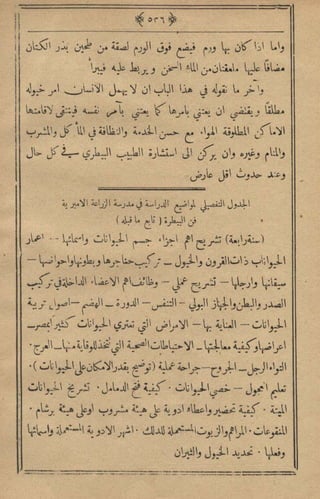 ﴿ ٥٣٦ ﴾
واما اذا كان بها ورم فيضع فوق الورم لصقة من طحين بذر الكتان
مضافاً عليها ملعقتان من الماء السخن ويربط عليه فيبرأ
وآخر ما نقوله في هذا الباب ان لا يهمل الانسان امر خيوله
مطلقاً ويقتضي ان يعتني بامرها كما يعتني بأمر نفسه فينتقي لاقامتها
الاماكن المطلوقة الهواء مع حسن الخدمة والنظافة في المأكل والمشرب
والمنام وغيره وان يركن الى استشارة الطبيب البيطري في كل حال
وعند حدوث اقل عارض
الجدول التفصيلي لمواضيع الدراسة في مدرسة الزراعة الاميرية
فن البيطرة ( تابع ما قبله )
(سنة رابعة) تشريح اهم اجزاء جسم الحيوانات واسمائها — اعمار
الحيوانات ذات القرون والخيول — تركيب حناجرها وبطونها واحواضها —
سيقانها وارجلها — تشريح عملي — وظائف اهم الاعضاء الداخلة في تركيب
الصدر والبطن والجهاز البولي — التنفس — الدورة — الهضم — اصول تربية
الحيوانات — العناية بها — الامراض التي تعتري الحيوانات كثيراً بمصر —
اعراضها وكيفية معالجتها — الاحتياطات الصحية التي تتخذ للوقاية منها — العرج
التواء الرجل — الجروح — جراحة عملية ( توضيح بقدر الامكان على الحيوانات ) .
تعليم العجول — خصي الحيوانات . كيفية فتح الدمامل . تشريح الحيوانات
الميتة . كيفية تحضير واعطاء ادوية على هيئة مشروب او على هيئة برشام .
المنقوعات . المراهم والزيوت المستعملة للدلك . اشهر الادوية المستعملة واسمائها
وفعلها . تحديد الخيول والثيران